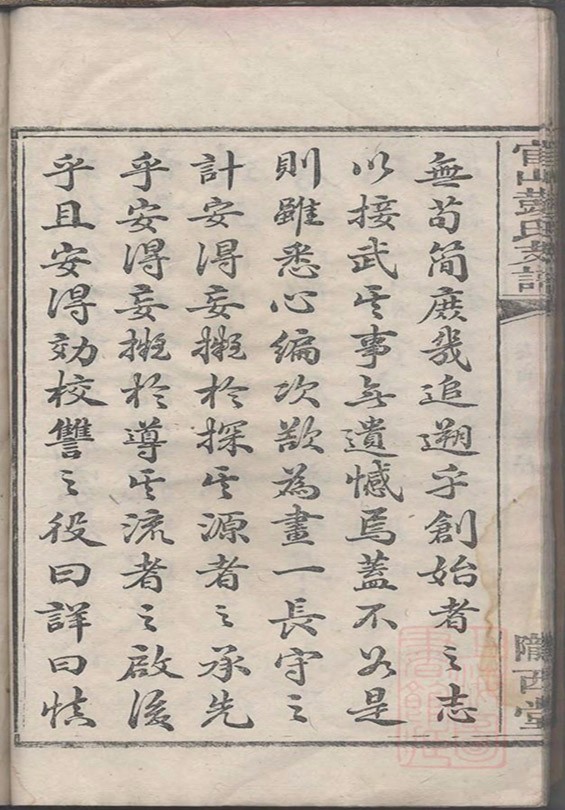 無苟簡庶幾追遡乎創始者之志
以接武其事無遺憾焉蓋不如是
則雖悉心編次歡為畫一長守之
計安得妄擬於探其源者之承先
乎安得妄擬於導其流者之啟後
乎且安得効校讐之役曰詳曰慎
彭氏支譜
隴西堂